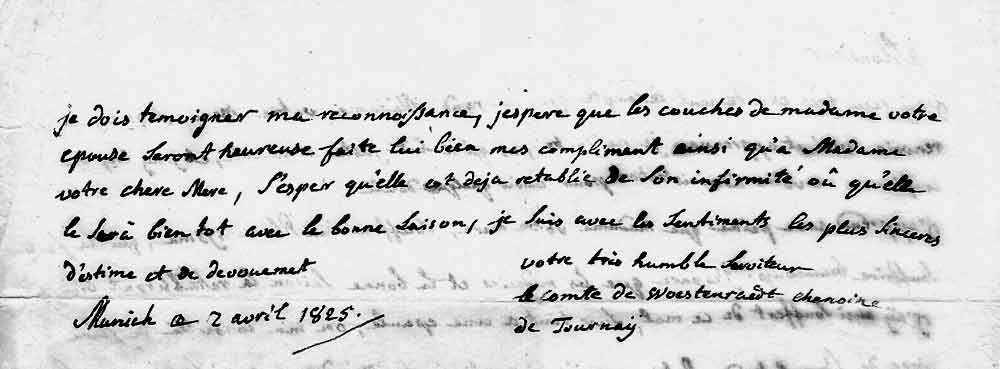 je dois temoigner ma reconnoissance, jespere que les couches de madame votre
epouse seront heureuse faite lui bien mes compliment ainsi qu'a Madame
votre chere Mere, J'esper qu'elle est deja retablie de son infirmité oû qu'elle
le serà bientot avec le bonne saison, je suis avec les sentiments les plus sinceres
d'estime et de devouemet
votre tris humble serviteur
le comte de Woestenraedt chenoine
de Tournaij
Munich ce 2 avril 1825.